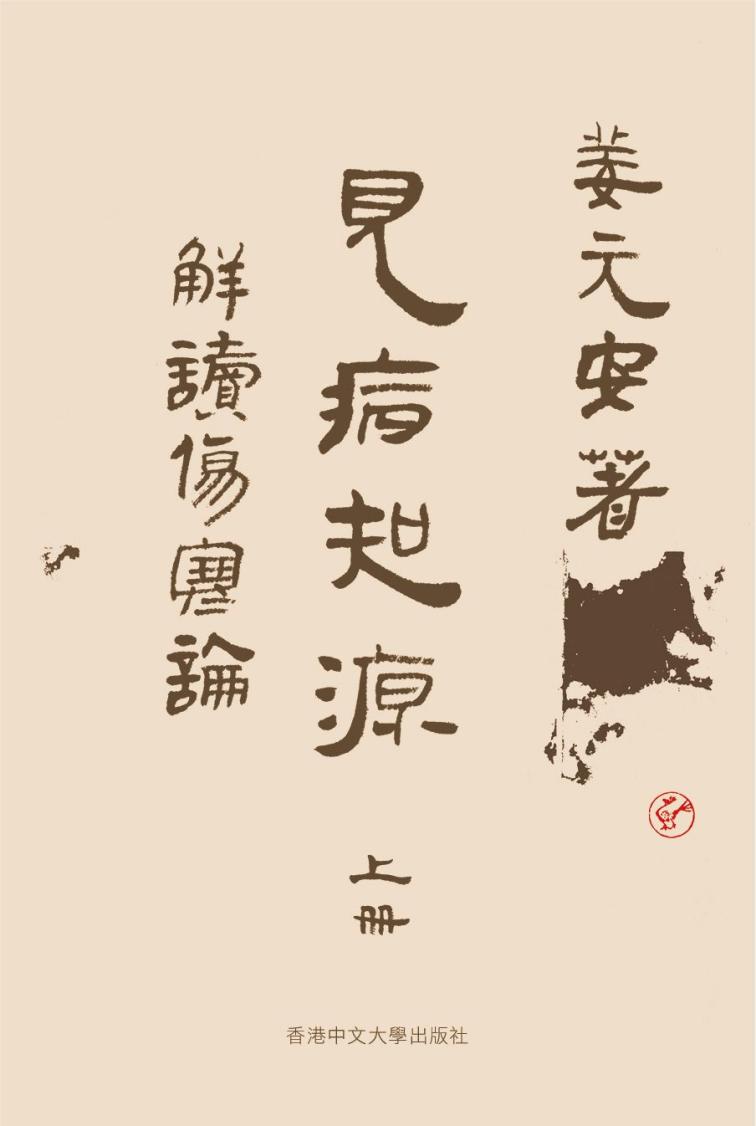 姜元安著
見病知源
上冊
解讀傷寒論
香港中文大學出版社